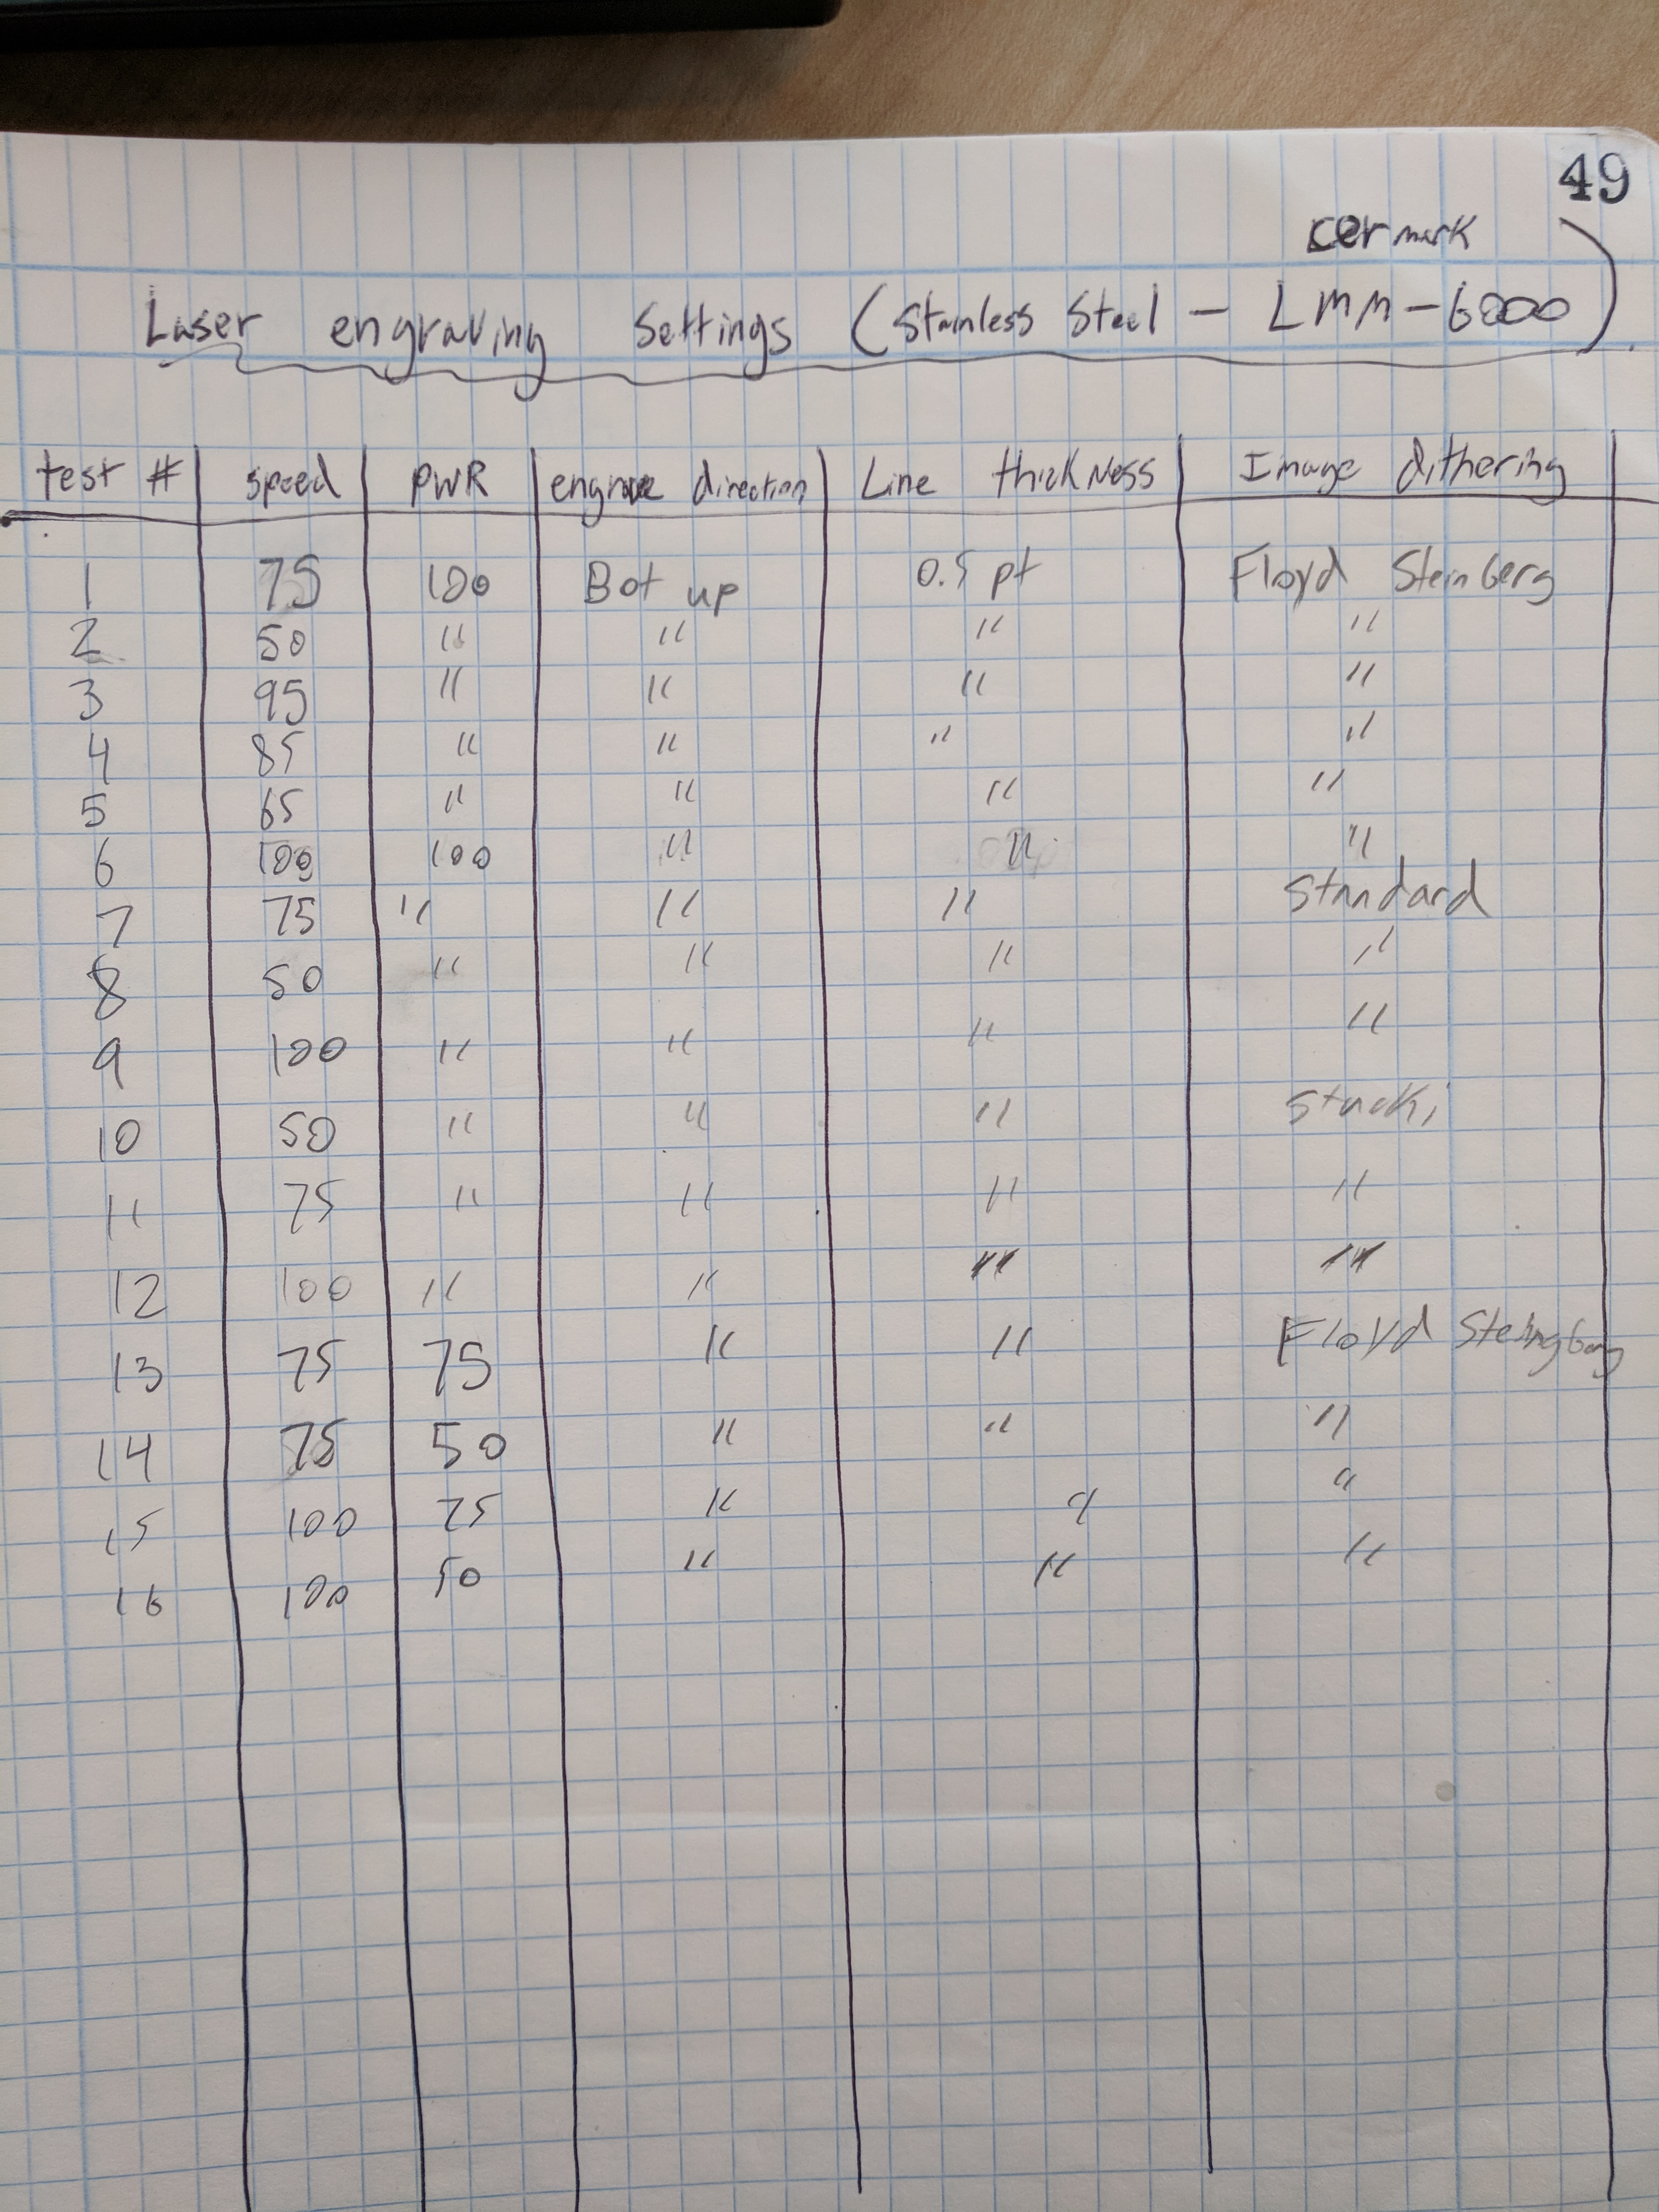 49
cermark
Laser engraving Settings (Stainless Steel - LMM-6000)
test # speed PWR engrave direction Line thickness Image dithering
1 75 100 Bot up 0.5 pt Floyd Steinberg
2 50 " " " "
3 95 " " " "
4 85 " " " "
5 65 " " " "
6 100 100 " " "
7 75 " " " Standard
8 50 " " " "
9 100 " " " "
10 50 " " " Stucki
11 75 " " " "
12 100 " " " "
13 75 75 " " Floyd Steingberg
14 75 50 " " "
15 100 75 " " "
16 100 50 " " "